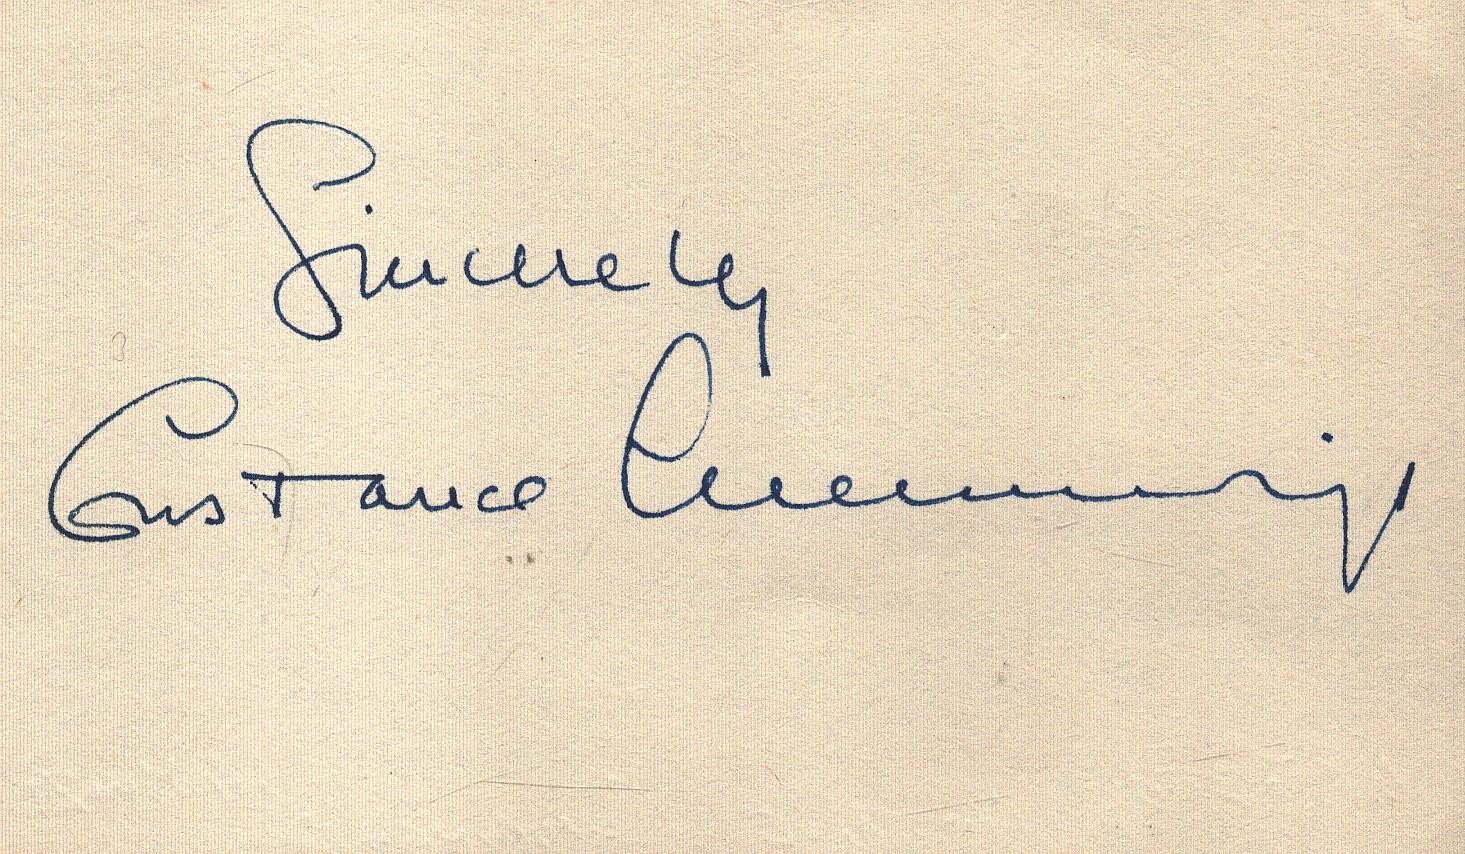 Sincerely
Constance Cummings